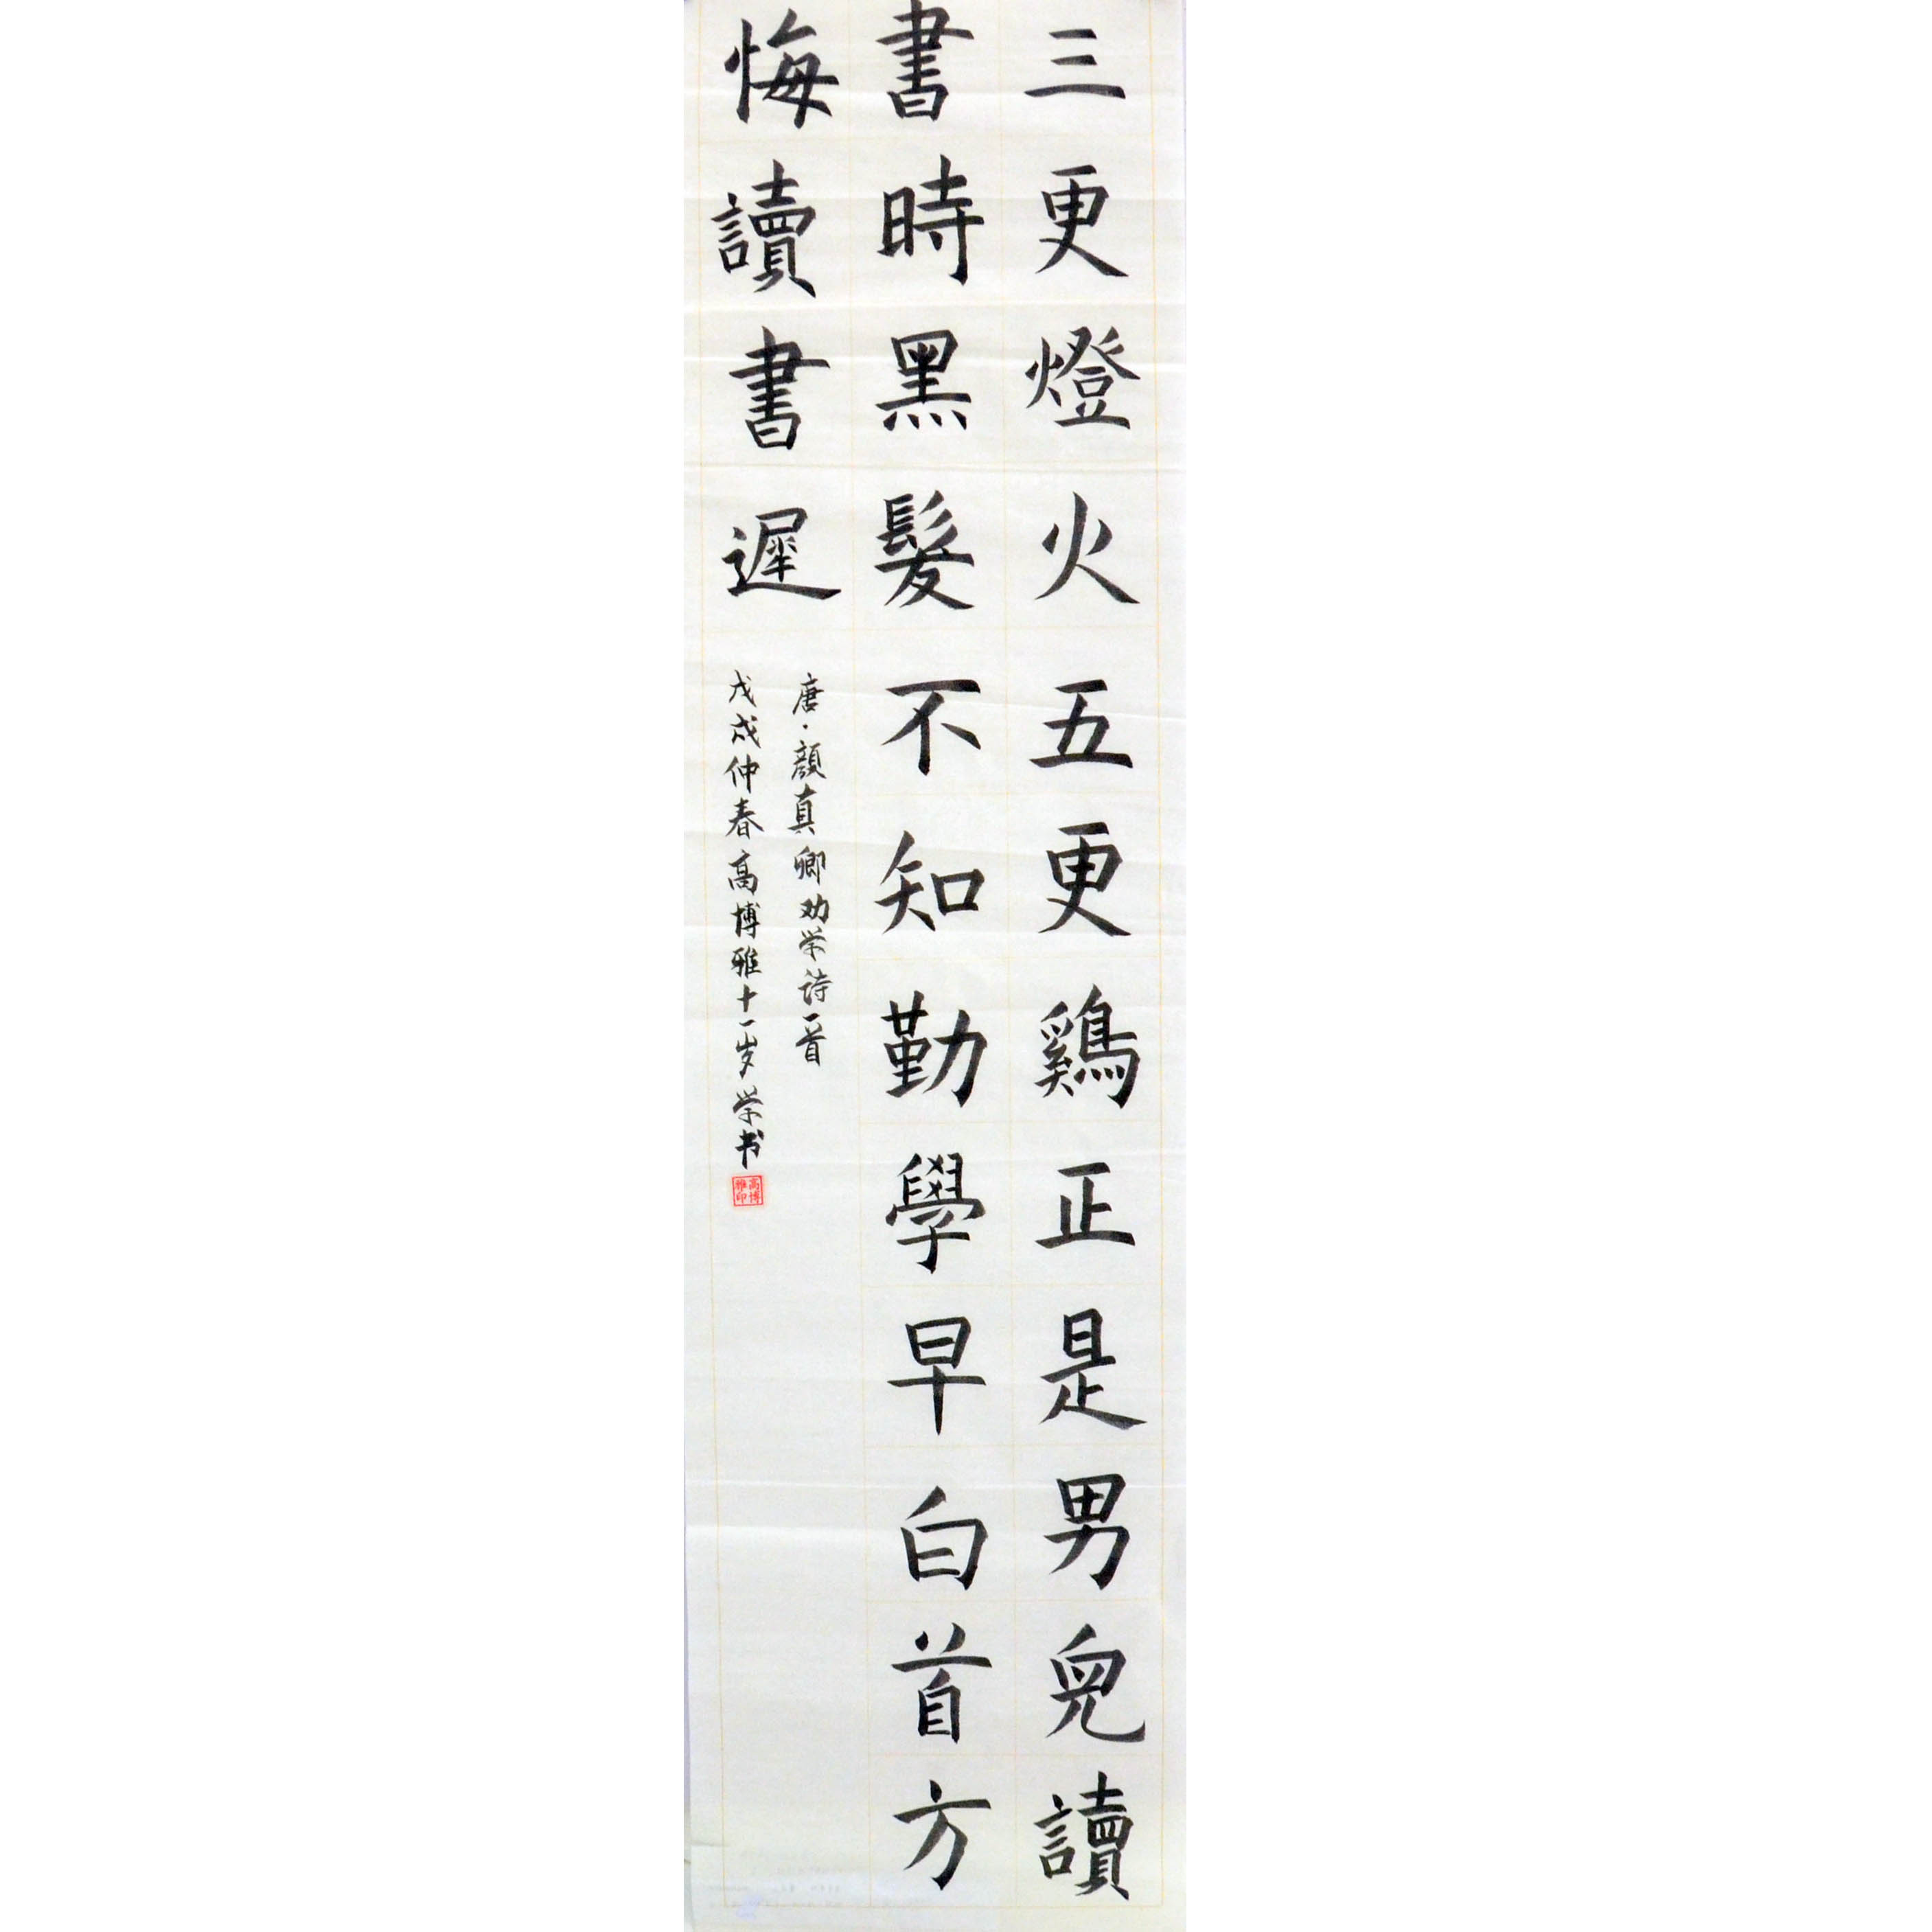 三更燈火五更鷄正是男兒讀
書時黑髮不知勤學早白首方
悔讀書遲
唐·顔真卿劝学诗一首
戊戌仲春高博雅十一岁学书
高博
雅印